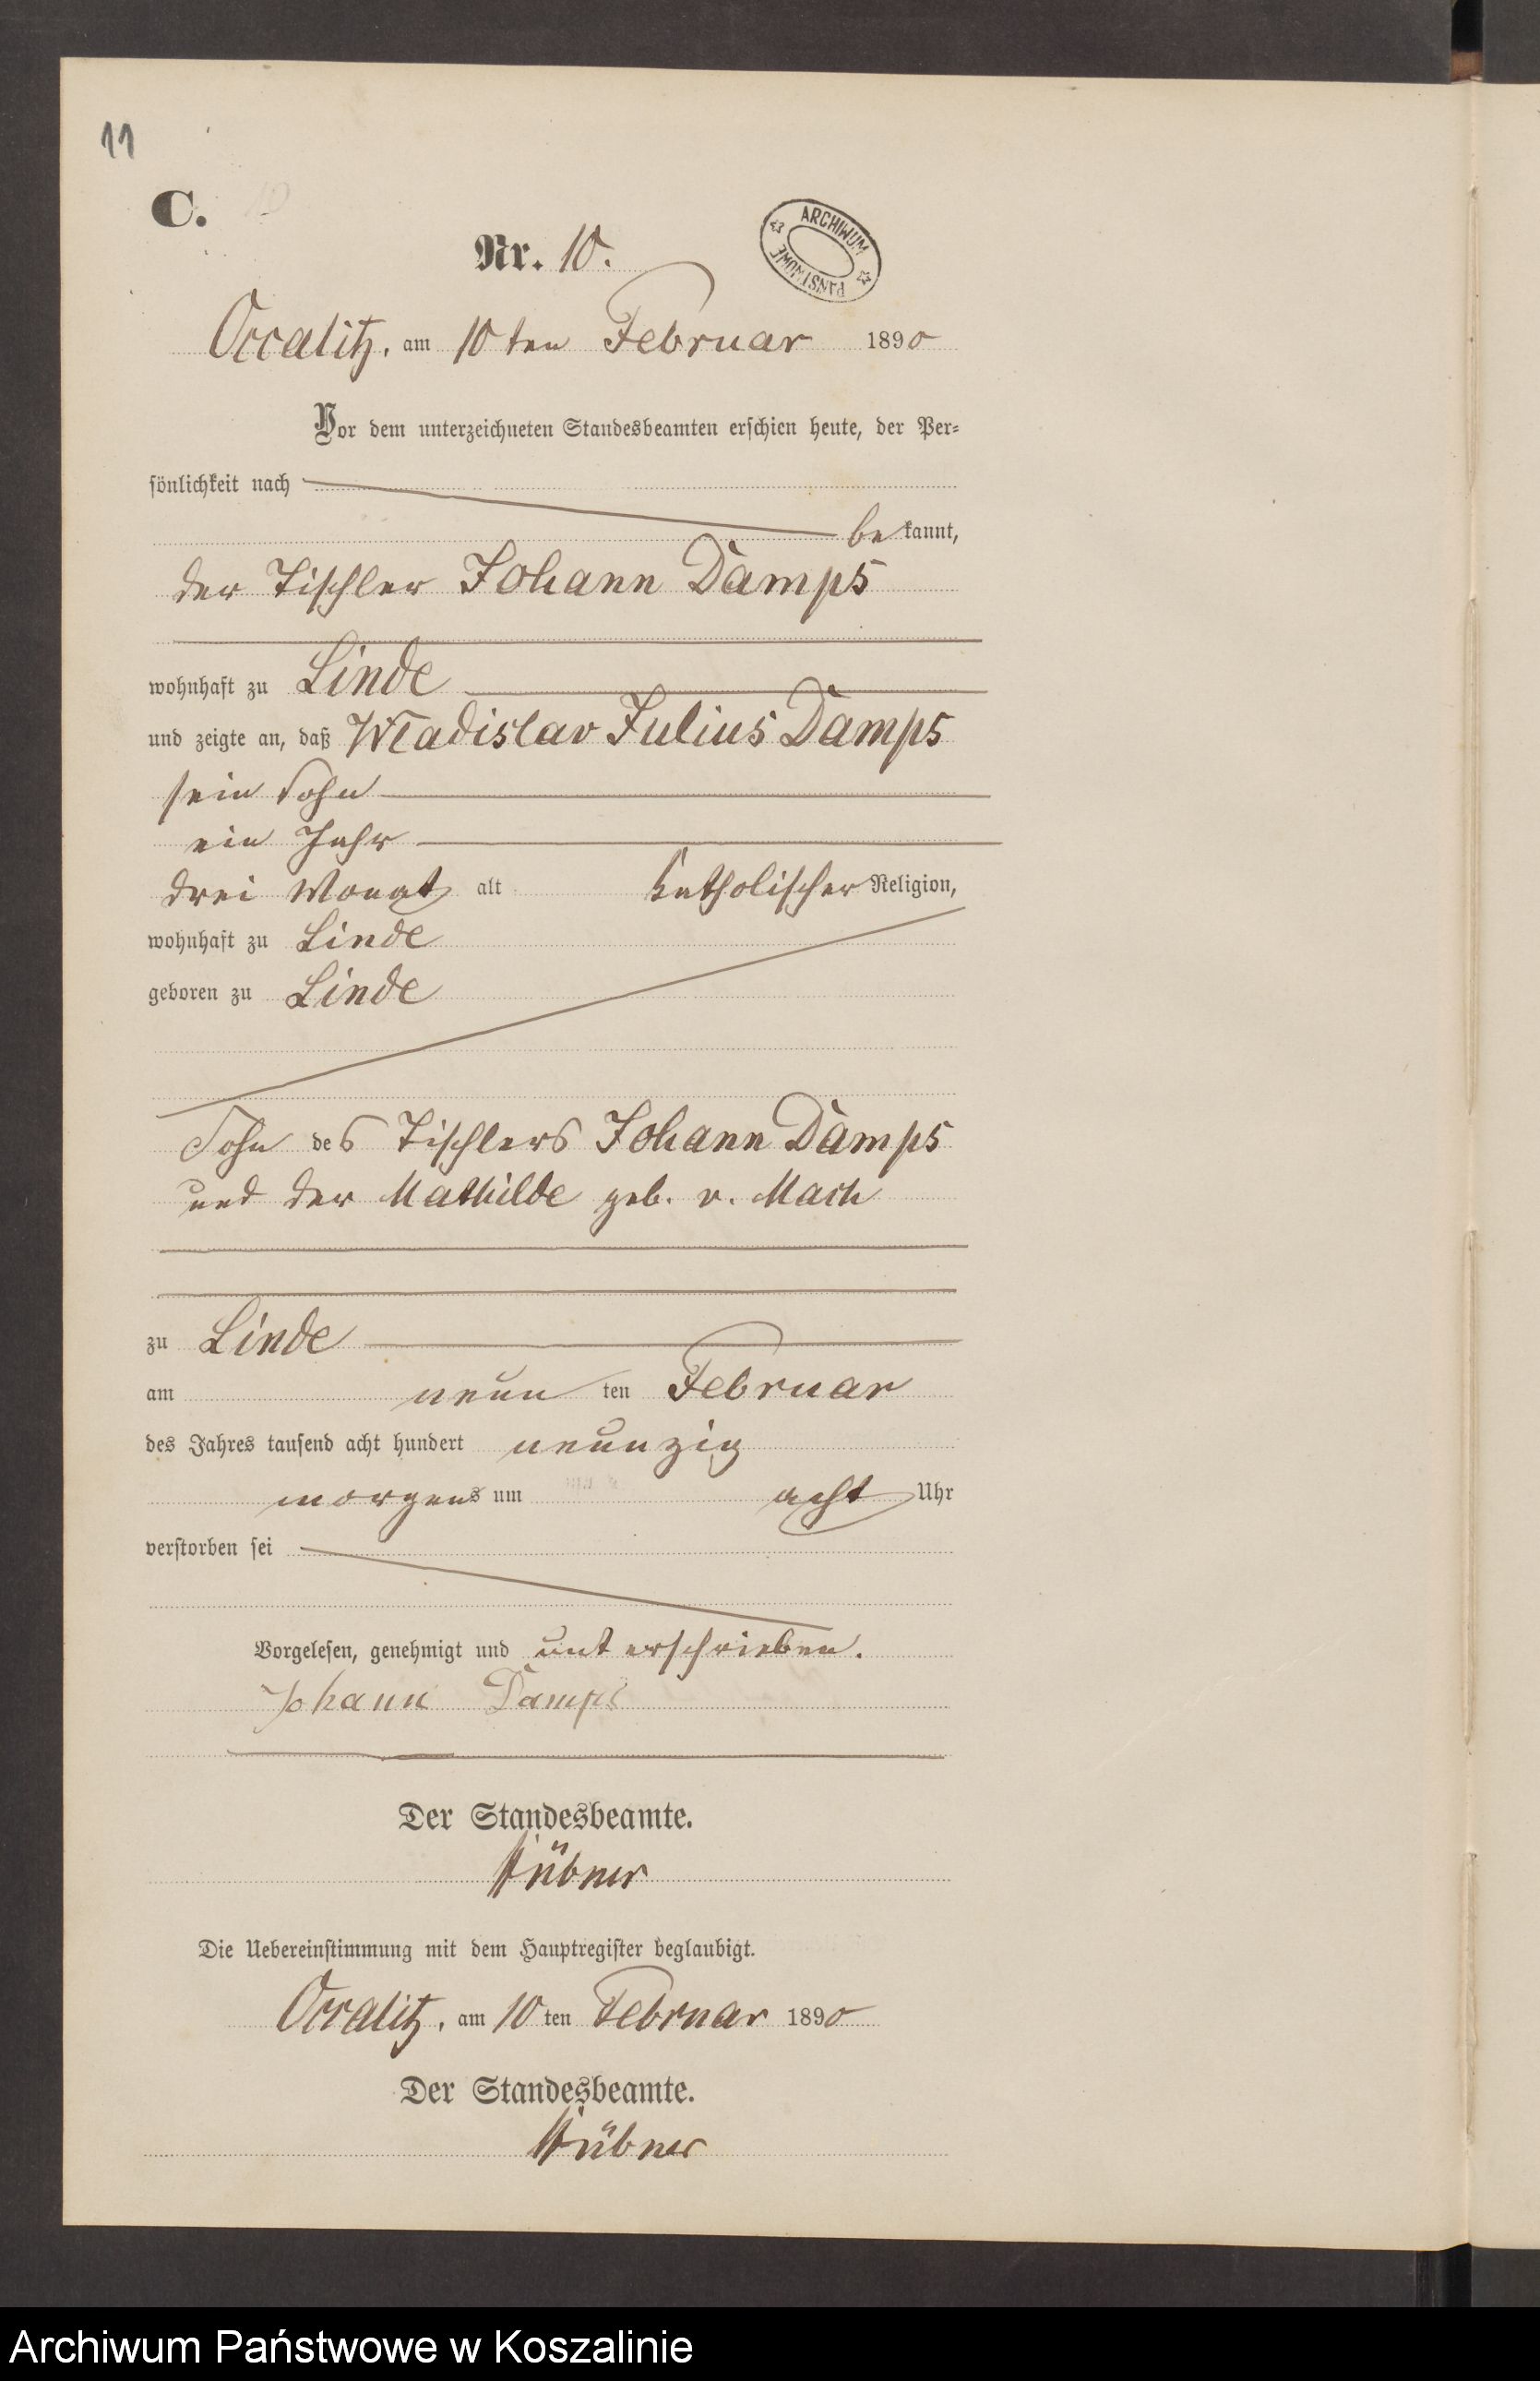 11
C. 10
Nr. 10.
ARCHIWUM PAŃSTWOWE
Occalitz, am 10 ten Februar 1890
Vor dem unterzeichneten Standesbeamten erschien heute, der Per-
sönlichkeit nach
bekannt,
der Tischler Johann Damps
wohnhaft zu Linde
und zeigte an, daß Wladislav Julius Damps
sein Sohn
ein Jahr
drei Monat alt katholischer Religion,
wohnhaft zu Linde
geboren zu Linde
Sohn des Tischlers Johann Damps
und der Mathilde geb. v. Mach
zu Linde
am neunten Februar
des Jahres tausend acht hundert neunzig
morgens um acht Uhr
verstorben sei
Vorgelesen, genehmigt und unterschrieben.
Johann Damps
Der Standesbeamte.
Hübner
Die Uebereinstimmung mit dem Hauptregister beglaubigt.
Occalitz, am 10 ten Februar 1890
Der Standesbeamte.
Hübner
Archiwum Państwowe w Koszalinie